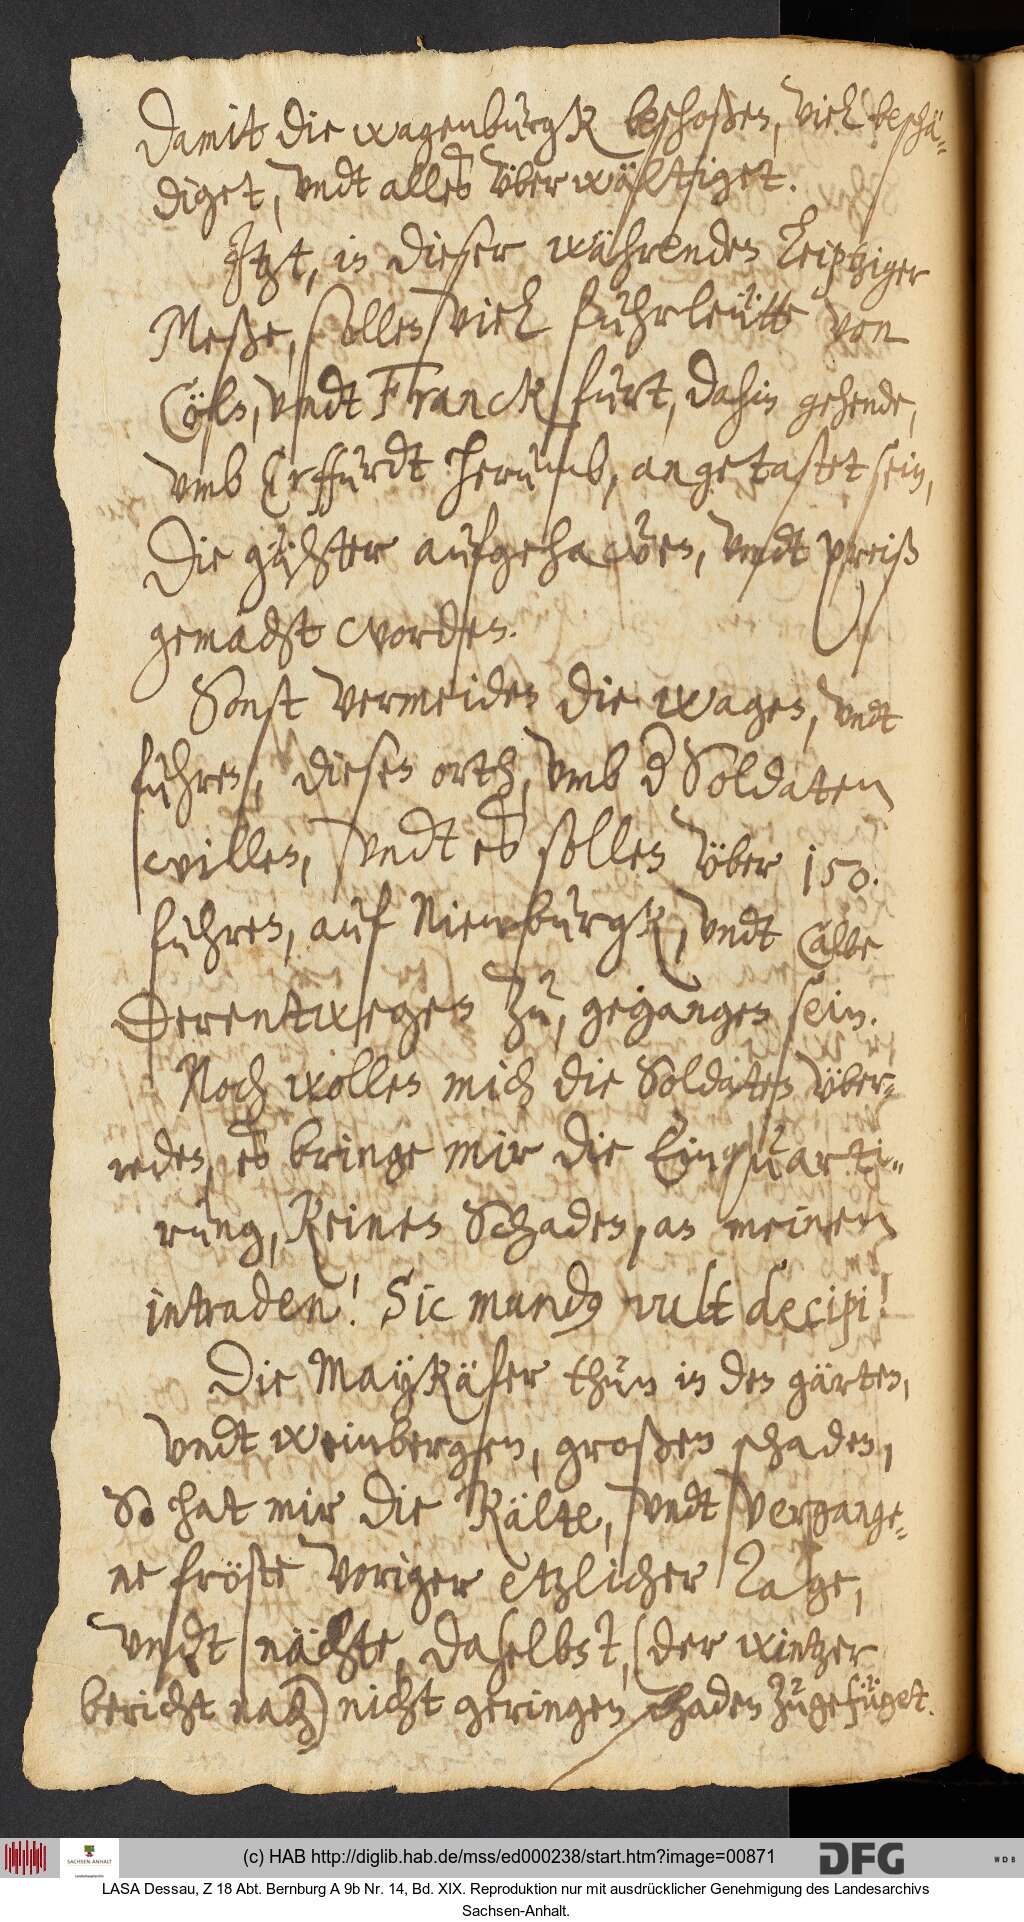 Damit die wagenburgk beschoßen, viel beschä-
diget, vndt alles vberwältiget.
Jtzt, in dieser währenden Leiptziger
Meße, sollen viel fuhrleütte von
Cöln, vndt Franckfurt, dahin gehende,
vmb Erffurdt herumb, angetastet sein,
Die gühter aufgehawen, vndt preiß
gemacht worden.
Sonst vermeiden die wagen, vndt
fuhren, diesen orth, vmb d Soldaten
willen, vndt es sollen vber 150.
fuhren, auf Niemburgk, vndt Calbe
Derentwegen zu, gegangen sein.
Noch wollen mich die Soldaten vber-
reden, es bringe mir die Einquarti-
rung, Keinen Schaden, an meinen
intraden! Sic mundus vult decipi!
Die Maykäfer thun in den gärten,
vndt weinbergen, großen schaden,
So hat mir die Kälte, vndt vergange-
ne fröste voriger etzlicher Tage,
vndt nächte, daselbst, (der wintzer
bericht nach) nicht geringen schaden zugefüget.
(c) HAB http://diglib.hab.de/mss/ed000238/start.htm?image=00871
SACHSEN-ANHALT
DFG
WDB
LASA Dessau, Z 18 Abt. Bernburg A 9b Nr. 14, Bd. XIX. Reproduktion nur mit ausdrücklicher Genehmigung des Landesarchivs
Sachsen-Anhalt.